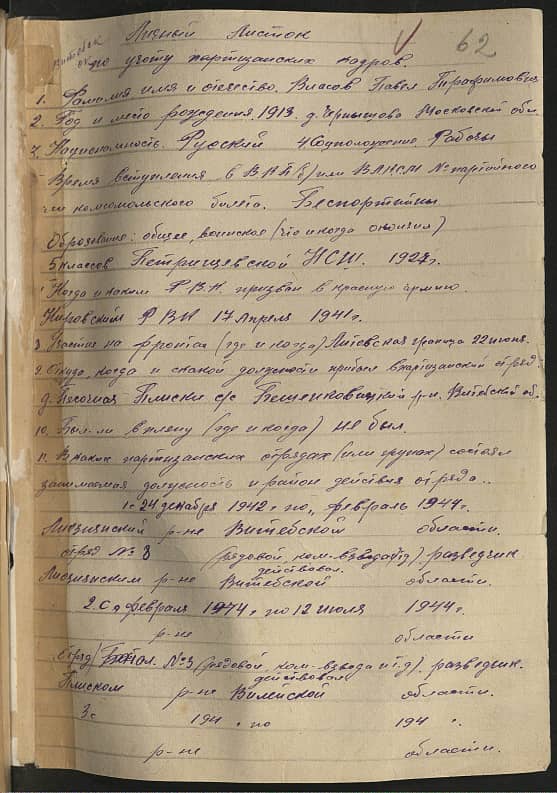 62
Личный Листок
по учету партизанских кадров.
1. Фамилия имя и отечество. Власов Павел Трафимович
2. Год и место рождения, 1913. д. Чернышово Московской обл.
Национальность. Русский 4 Соцположение Рабочы
Время вступления в ВКП(б) или ВЛКСМ № партийного
или комсомольского билета. Беспортийны
Образование: общее, воинское (что и когда окончил)
5 классов Петрищевской НСШ. 1927г.
Когда и каким РВК призван в красную армию.
Кировским РВК 17 Апреля 1941г.
Участие на фронтах (где и когда) Литовская граница 22 июня.
9. Откуда, когда и с какой должности прибыл в партизанский отряд
д. Песочная Плиски с/с Бешенковицкий р-н. Витебской об.
10. Был-ли в плену (где и когда) не был.
11. В каких партизанских отрядах (или группах) состоял
занимаемая должность и район действия отряда..
1 с 24 декабря 1942г по, февраль 1944г.
Лиозненский р-не Витебской области.
отряд № 8 (рядовой, ком-взвода и тд) разведчик
действовал
Лиозненским р-не Витебской области.
2. С д февраля 1974г по 12 июля 1944г.
р-не области
отряд № 3 (рядовой, ком-взвода и т.д). разведчик.
действовал
Плиском р-не Вилейской области.
3 с 194 г по 194 г.
р-не области.